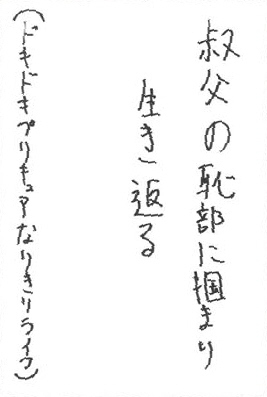 叔父の恥部に掴まり
生き返る
(ドキドキプリキュアなりきりライフ)